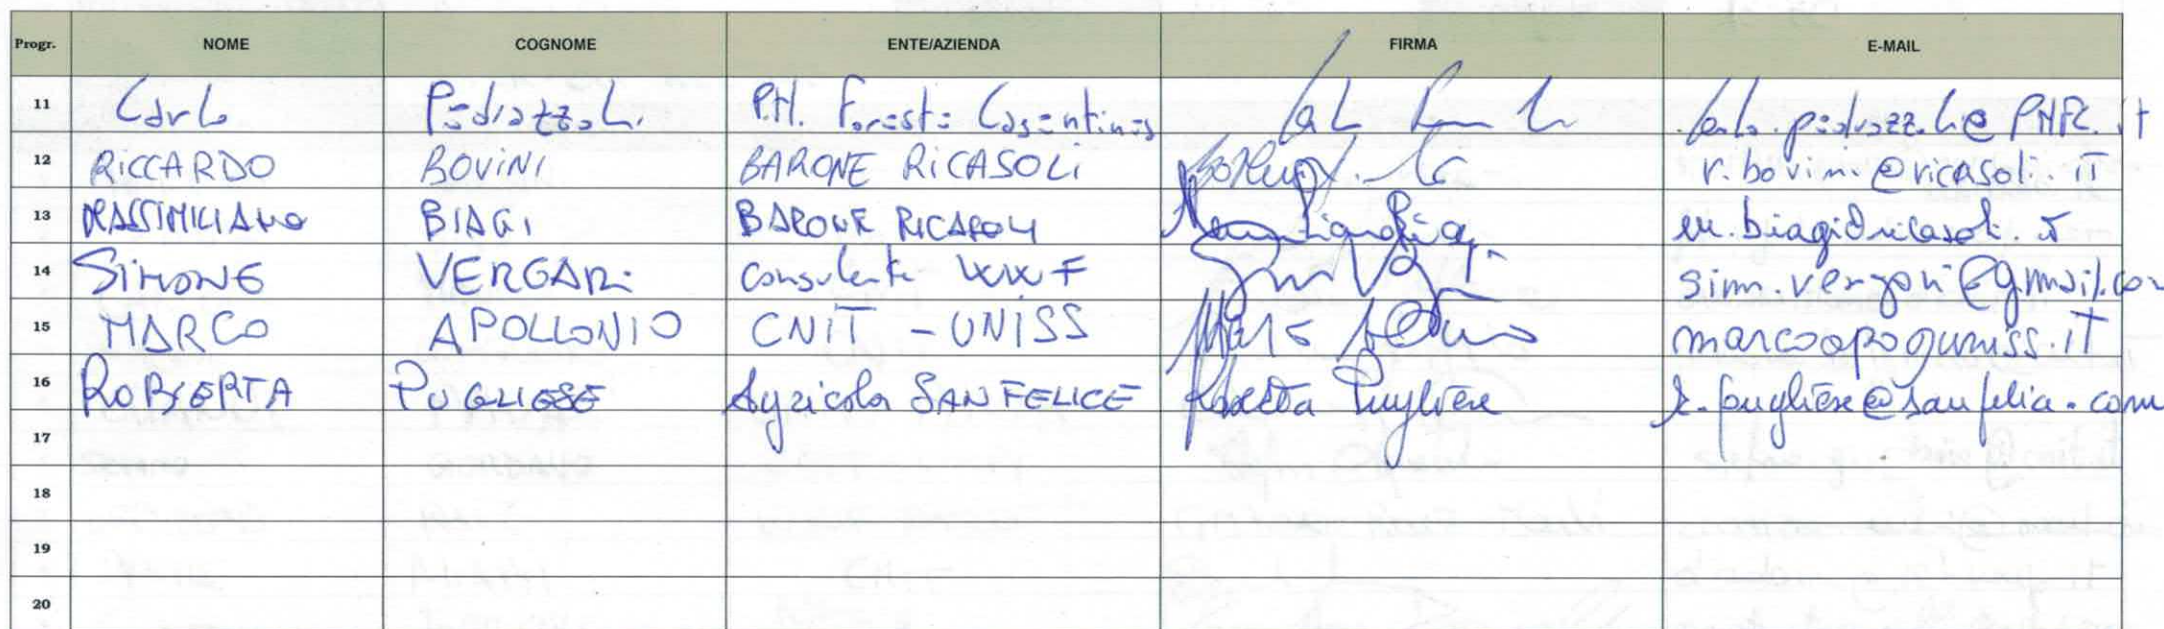 Progr. NOME COGNOME ENTE/AZIENDA FIRMA E-MAIL
11 Carlo Pedrazzoli P.N. Foreste Casentinesi
12 RICCARDO BOVINI BARONE RICASOLI r.bovini@ricasoli.it
13 MASSIMILIANO BIAGI BARONE RICASOLI m.biagi@ricasoli.it
14 SIMONE VERGARI consulente WWF
15 MARCO APOLLONIO CNIT - UNISS marcoapo@uniss.it
16 ROBERTA PUGLIESE Agricola SAN FELICE Roberta Pugliese r.pugliese@sanfelice.com
17
18
19
20